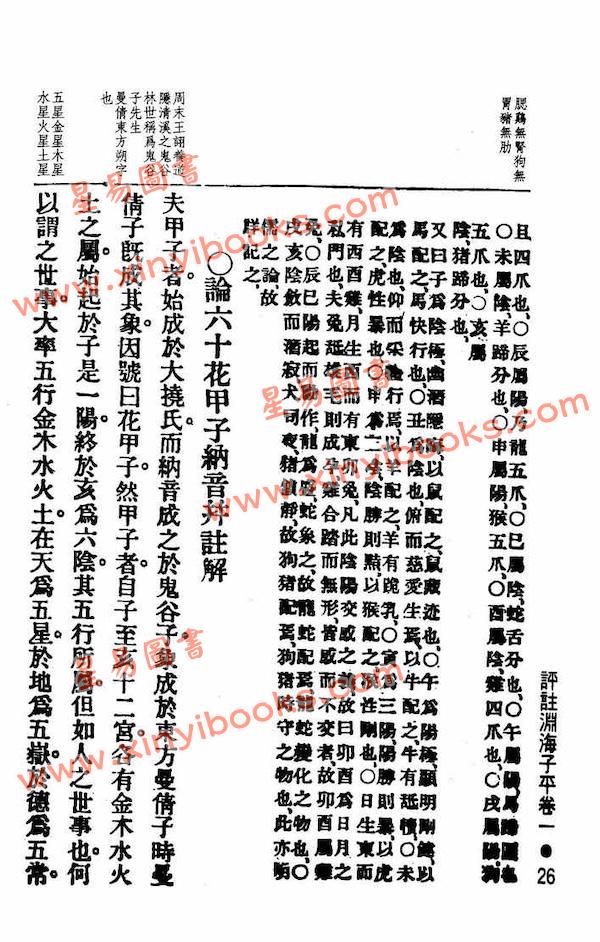 評註淵海子平卷一 ● 26
腮鷄無腎狗無
胃豬無肋
且四爪也、〇辰屬陽、乃龍五爪、〇巳屬陰、蛇舌分也、〇午屬陽、馬蹄圓也
〇未屬陰、羊蹄分也、〇申屬陽、猴五爪、〇酉屬陰、雞四爪也、〇戌屬陽、狗
五爪也、〇亥屬
陰、猪蹄分也、
又曰子爲陰極、幽潛隱晦、以鼠配之、鼠藏迹也、〇午爲陽極、顯明剛健、以
馬配之、馬快行也、〇丑爲陰也、俯而慈愛生焉、以牛配之、牛有舐犢、〇未
爲陰也、仰而秉行焉、以羊配之、羊有跪乳、〇寅爲三陽、陽勝則暴、以虎
配之、虎性暴也、〇申爲三陰、陰勝則黠、以猴配之、猴性也、〇日生東而
有西酉雞、月生酉而有東卯兔、凡此陰陽交感之義、故曰卯酉爲日月之
私門也、夫兔舐雄毛則成孕、雞合踏而無形、皆感而不交者、故卯酉屬雞
兔、〇辰巳陽起而動作、龍爲盛、蛇次之、故龍蛇配焉、龍蛇變化之物也、〇
戌亥陰斂而潛寂、犬司夜、猪鎮靜、故狗猪配焉、狗猪時守之物也、此亦陋
儒之論、故
詳記之、
〇論六十花甲子納音幷註解
周末王詡養道
隱清溪之鬼谷
林世稱爲鬼谷
子先生
曼倩東方朔字
也
夫甲子者始成於大撓氏而納音成之於鬼谷子。象成於東方曼倩子時曼
倩子旣成其象因號曰花甲子。然甲子者自子至亥十二宮各有金木水火
土之屬。始起於子是一陽終於亥爲六陰其五行所屬但如人之世事也。何
以謂之世事。大率五行金木水火土在天爲五星於地爲五嶽於德爲五常
五星金星木星
水星火星土星
星易圖書
www.xinyibooks.com
星易圖書
www.xinyibooks.com
星易圖書
www.xinyibooks.com